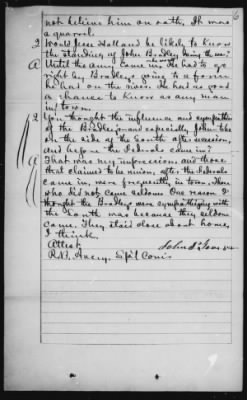 6
not believe him on oath, It was
a quarrel.
Q Would Jesse Holland be likely to know
the standing of John Bradley during the war?
A Until the army came in, He had to go
right by Bradleys going to a farm
he had on the river. He had as good
a chance to know as any man
in town.
Q You thought the influence and sympathies
of the Bradleys and especially John to be
on the side of the South after secession,
and before the Federals came in?
A That was my impression, and those
that claimed to be union, after the Federals
came in, were frequently in town. Those
who did not came seldom. One reason I
thought the Bradleys were sympathizing with
the South was because they seldom
came. They staid close about home,
I think.
Attest: John
R.B. Avery, Sp'l Com'r